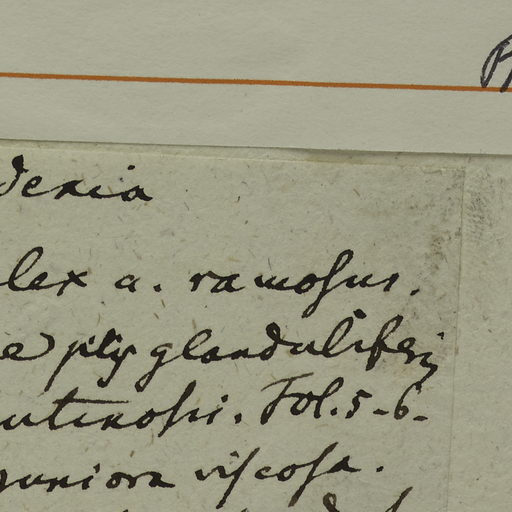 denia
lex a. ramosus.
e pilis glanduliferis
utinosi. Fol. 5-6-
juniora viscosa.